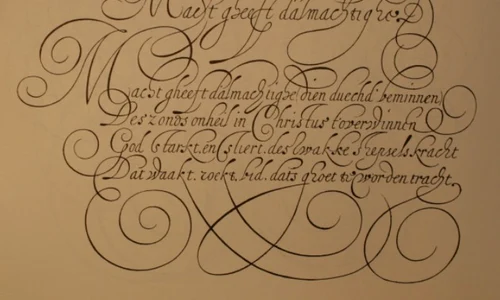 Macht gheeft d'almachtighe
Macht gheeft d'almachtighe, dien duechd' beminnen,
Des zonds onheil in Christus t'overwinnen
God starkt, en stiert, des zwakke schepsels kracht
Dat waakt, zoekt, bid, dats ghoet te worden tracht.